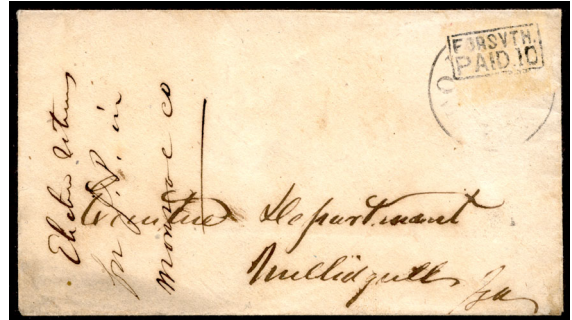 FORSYTH.
PAID.10
Election returns
for J.P. in
Monroe co
Executive Department
Milledgeville
Ga